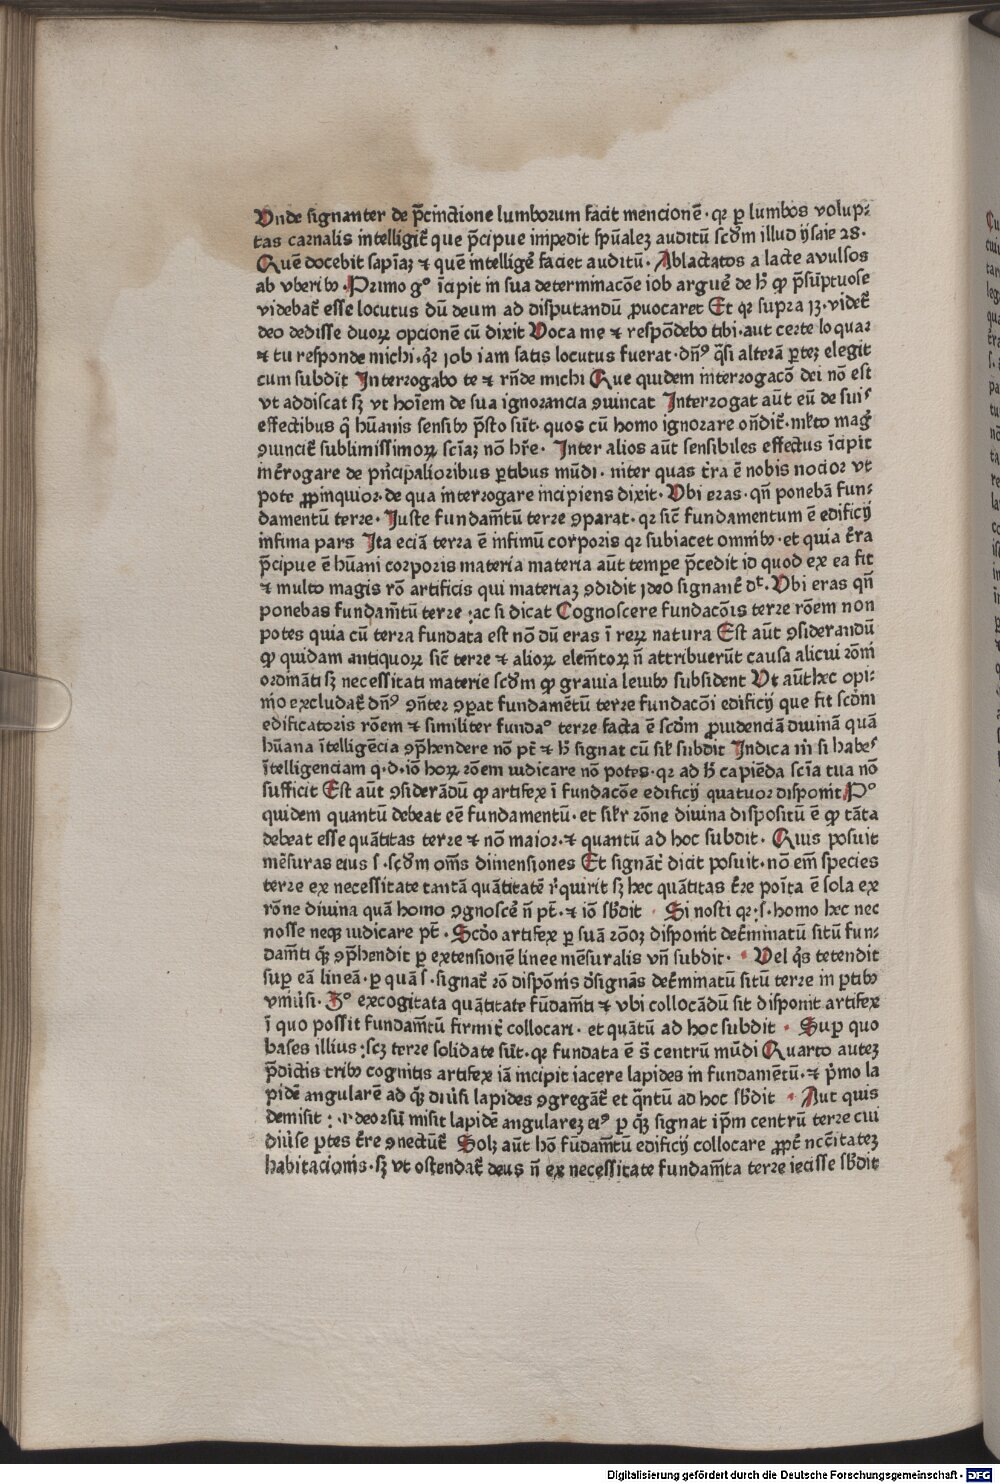 Vnde signanter de p̄cinctione lumborum facit mencionē· qꝛ ꝑ lumbos volup⸗
tas carnalis intelligit̄ que p̄cipue impedit spūalez auditū scd̄m illud ysaie 28·
Quē docebit sapīaꝫ ⁊ quē intelligē faciet auditū· Ablactatos a lacte avulsos
ab vberibꝰ· Primo gᵒ īcipit in sua determinacōe iob arguē de h̄ ꝙ p̄sūptuose
videbat̄ esse locutus dū deum ad disputandū ꝓuocaret Et qꝛ supra 13· videt̄
deo dedisse duoꝝ opcionē cū dixit Voca me ⁊ respōdebo tibi· aut certe loquar
⁊ tu responde michi· qꝛ iob iam satis locutus fuerat· dn̄ꝰ q̄si alterā ꝑtez elegit
cum subdit Interrogabo te ⁊ rn̄de michi Que quidem interrogacō dei nō est
vt addiscat sꝫ vt hoīem de sua ignorancia ꝯuincat Interrogat aūt eū de suis
effectibus q̄ hūanis sensibꝰ p̄sto sūt· quos cū homo ignorare on̄dit̄· mlto maḡ
ꝯuincit̄ sublimissimoꝝ scīaꝫ nō hr̄e· Inter alios aūt sensibiles effectus īcipit
int̄rogare de pn̄cipalioribus ꝑtibus mūdi· niter quas t̄ra ē nobis nocior vt
pote ꝓpinquior· de qua interrogare incipiens dixit· Vbi eras· qn̄ ponebā fun⸗
damentū terre· Juste fundam̄tū terre ꝯparat· qꝛ sic̄ fundamentum ē edificij
infima pars Ita eciā terra ē infimū corporis qꝛ subiacet omnibꝰ· et quia t̄ra
p̄cipue ē hūani corporis materia materia aūt tempe p̄cedit id quod ex ea fit
⁊ multo magis rō artificis qui materiaꝫ ꝯdidit ideo signant̄ dᵗ· Vbi eras qn̄
ponebas fundam̄tū terre : ac si dicat Cognoscere fundacōis terre rōem non
potes quia cū terra fundata est nō dū eras ī reꝝ natura Est aūt ꝯsiderandū
ꝙ quidam antiquoꝝ sic̄ terre ⁊ alioꝝ elem̄toꝝ n̄ attribuerūt causa alicui rōni
ordināti sꝫ necessitati materie scd̄m ꝙ grauia leuibꝰ subsident Vt aūt hec opi⸗
nio excludat̄ dn̄ꝰ ꝯn̄ter ꝯꝑat fundamētū terre fundacōi edificij que fit scd̄m
edificatoris rōem ⁊ similiter fundaᵒ terre facta ē scd̄m ꝓuidenciā diuinā quā
hūana ītelligēcia ꝯp̄hendere nō pt̄ ⁊ h̄ signat cū sil̄ subdit Indica m̄ si habes
ītelligenciam q· d· iō hoꝝ rōem iudicare nō potes· qꝛ ad h̄ capiēda scīa tua nō
sufficit Est aūt ꝯsiderādū ꝙ artifex ī fundacōe edificij quatuor disponit Pᵒ
quidem quantū debeat eē fundamentū· et sil̄r rōne diuina dispositū ē ꝙ tāta
debeat esse quātitas terre ⁊ nō maior· ⁊ quantū ad hoc subdit· Quis posuit
mēsuras eius s· scd̄m om̄s dimensiones Et signāt̄ dicit posuit· nō em̄ species
terre ex necessitate tantā quātitatē r̄quirit sꝫ hec quātitas t̄re poīta ē sola ex
rōne diuina quā homo ꝯgnoscē n̄ pt̄· ⁊ iō sb̄dit · Si nosti qꝛ· s· homo hec nec
nosse neqꝫ iudicare pt̄· Scd̄o artifex ꝑ suā rōoꝫ disponit det̄minatū sitū fun⸗
dam̄ti q̄ ꝯp̄hendit ꝑ extensionē linee mēsuralis vn̄ subdit· · Vel q̄s tetendit
suꝑ eā lineā· ꝑ quā s· signat̄ rō dispōnis d̄signās det̄minatū sitū terre in ꝑtibꝰ
vniūsi· 3ᵒ excogitata quātitate fūdam̄ti ⁊ vbi collocādū sit disponit artifex
ī quo possit fundam̄tū firmit̄ collocari· et quātū ad hoc subdit · Suꝑ quo
bases illius : scꝫ terre solidate sūt· qꝛ fundata ē s̄ centrū mūdi Quarto autez
p̄dictis tribꝰ cognitis artifex iā incipit iacere lapides in fundamētū· ⁊ p̄mo la
pidē angularē ad q̄ diūsi lapides ꝯgregāt̄ et q̄ntū ad hoc sb̄dit · Aut quis
demisit : i· deorsū misit lapidē angularez eiꝰ ꝑ q̄ signat ip̄m centrū terre cui
diūse ꝑtes t̄re ꝯnectūt̄ Solꝫ aūt hō fūdam̄tū edificij collocare ꝓpt̄ nc̄citatez
habitacionis· sꝫ vt ostendat̄ deus n̄ ex necessitate fundam̄ta terre iecisse sb̄dit
Digitalisierung gefördert durch die Deutsche Forschungsgemeinschaft - DFG